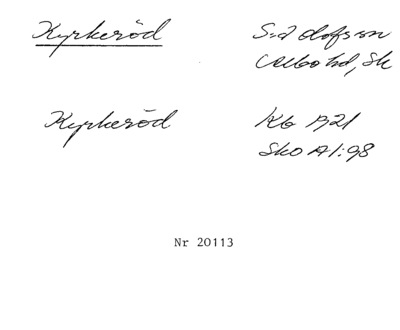 Kyrkeröd
S. Adolfsson
Albo hd, Sk
Kyrkeröd
Kb 1921
Sko A1:98
Nr 20113